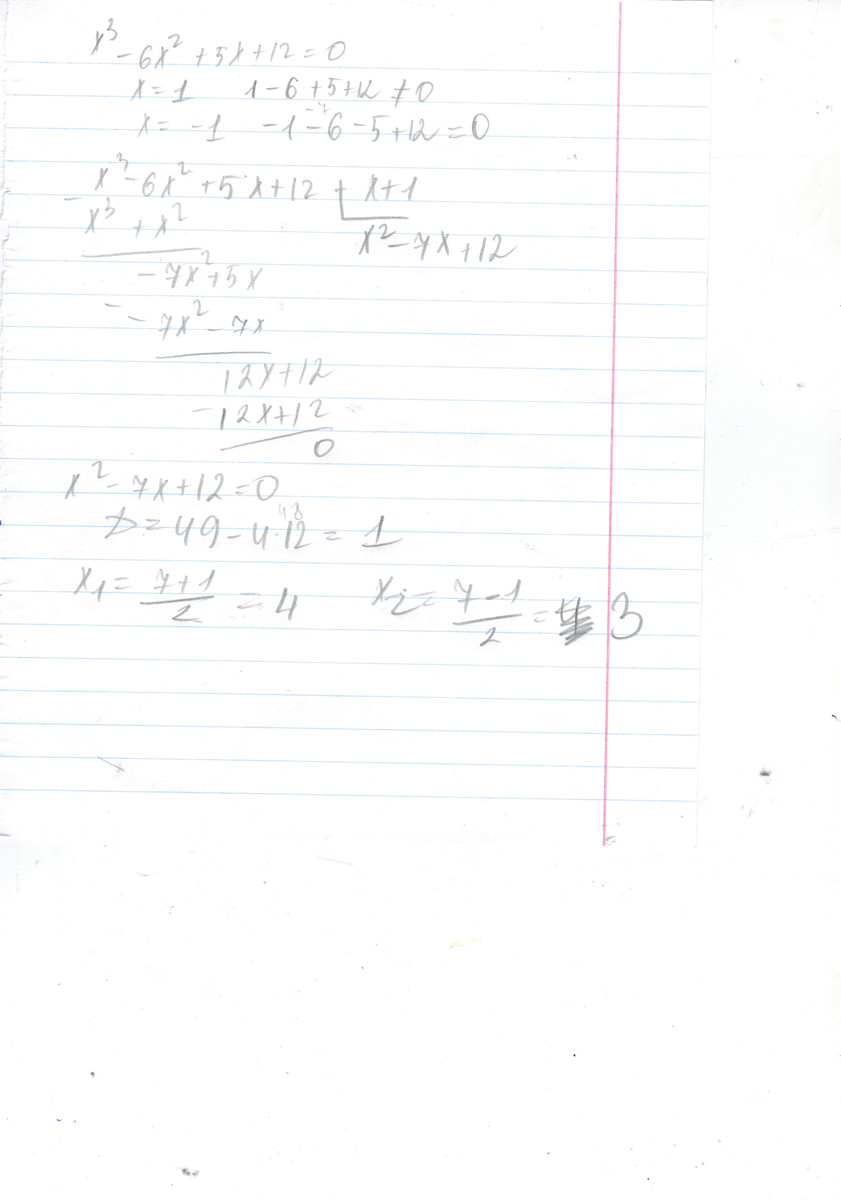 x³ - 6x² + 5x + 12 = 0
x = 1 1 - 6 + 5 + 12 ≠ 0
-7
x = -1 -1 - 6 - 5 + 12 = 0
x³ - 6x² + 5x + 12 x + 1
- x³ + x² x² - 7x + 12
- 7x² + 5x
- - 7x² - 7x
12x + 12
- 12x + 12
0
x² - 7x + 12 = 0
48
D = 49 - 4·12 = 1
x₁ = (7+1)/2 = 4 x₂ = (7-1)/2 = 3